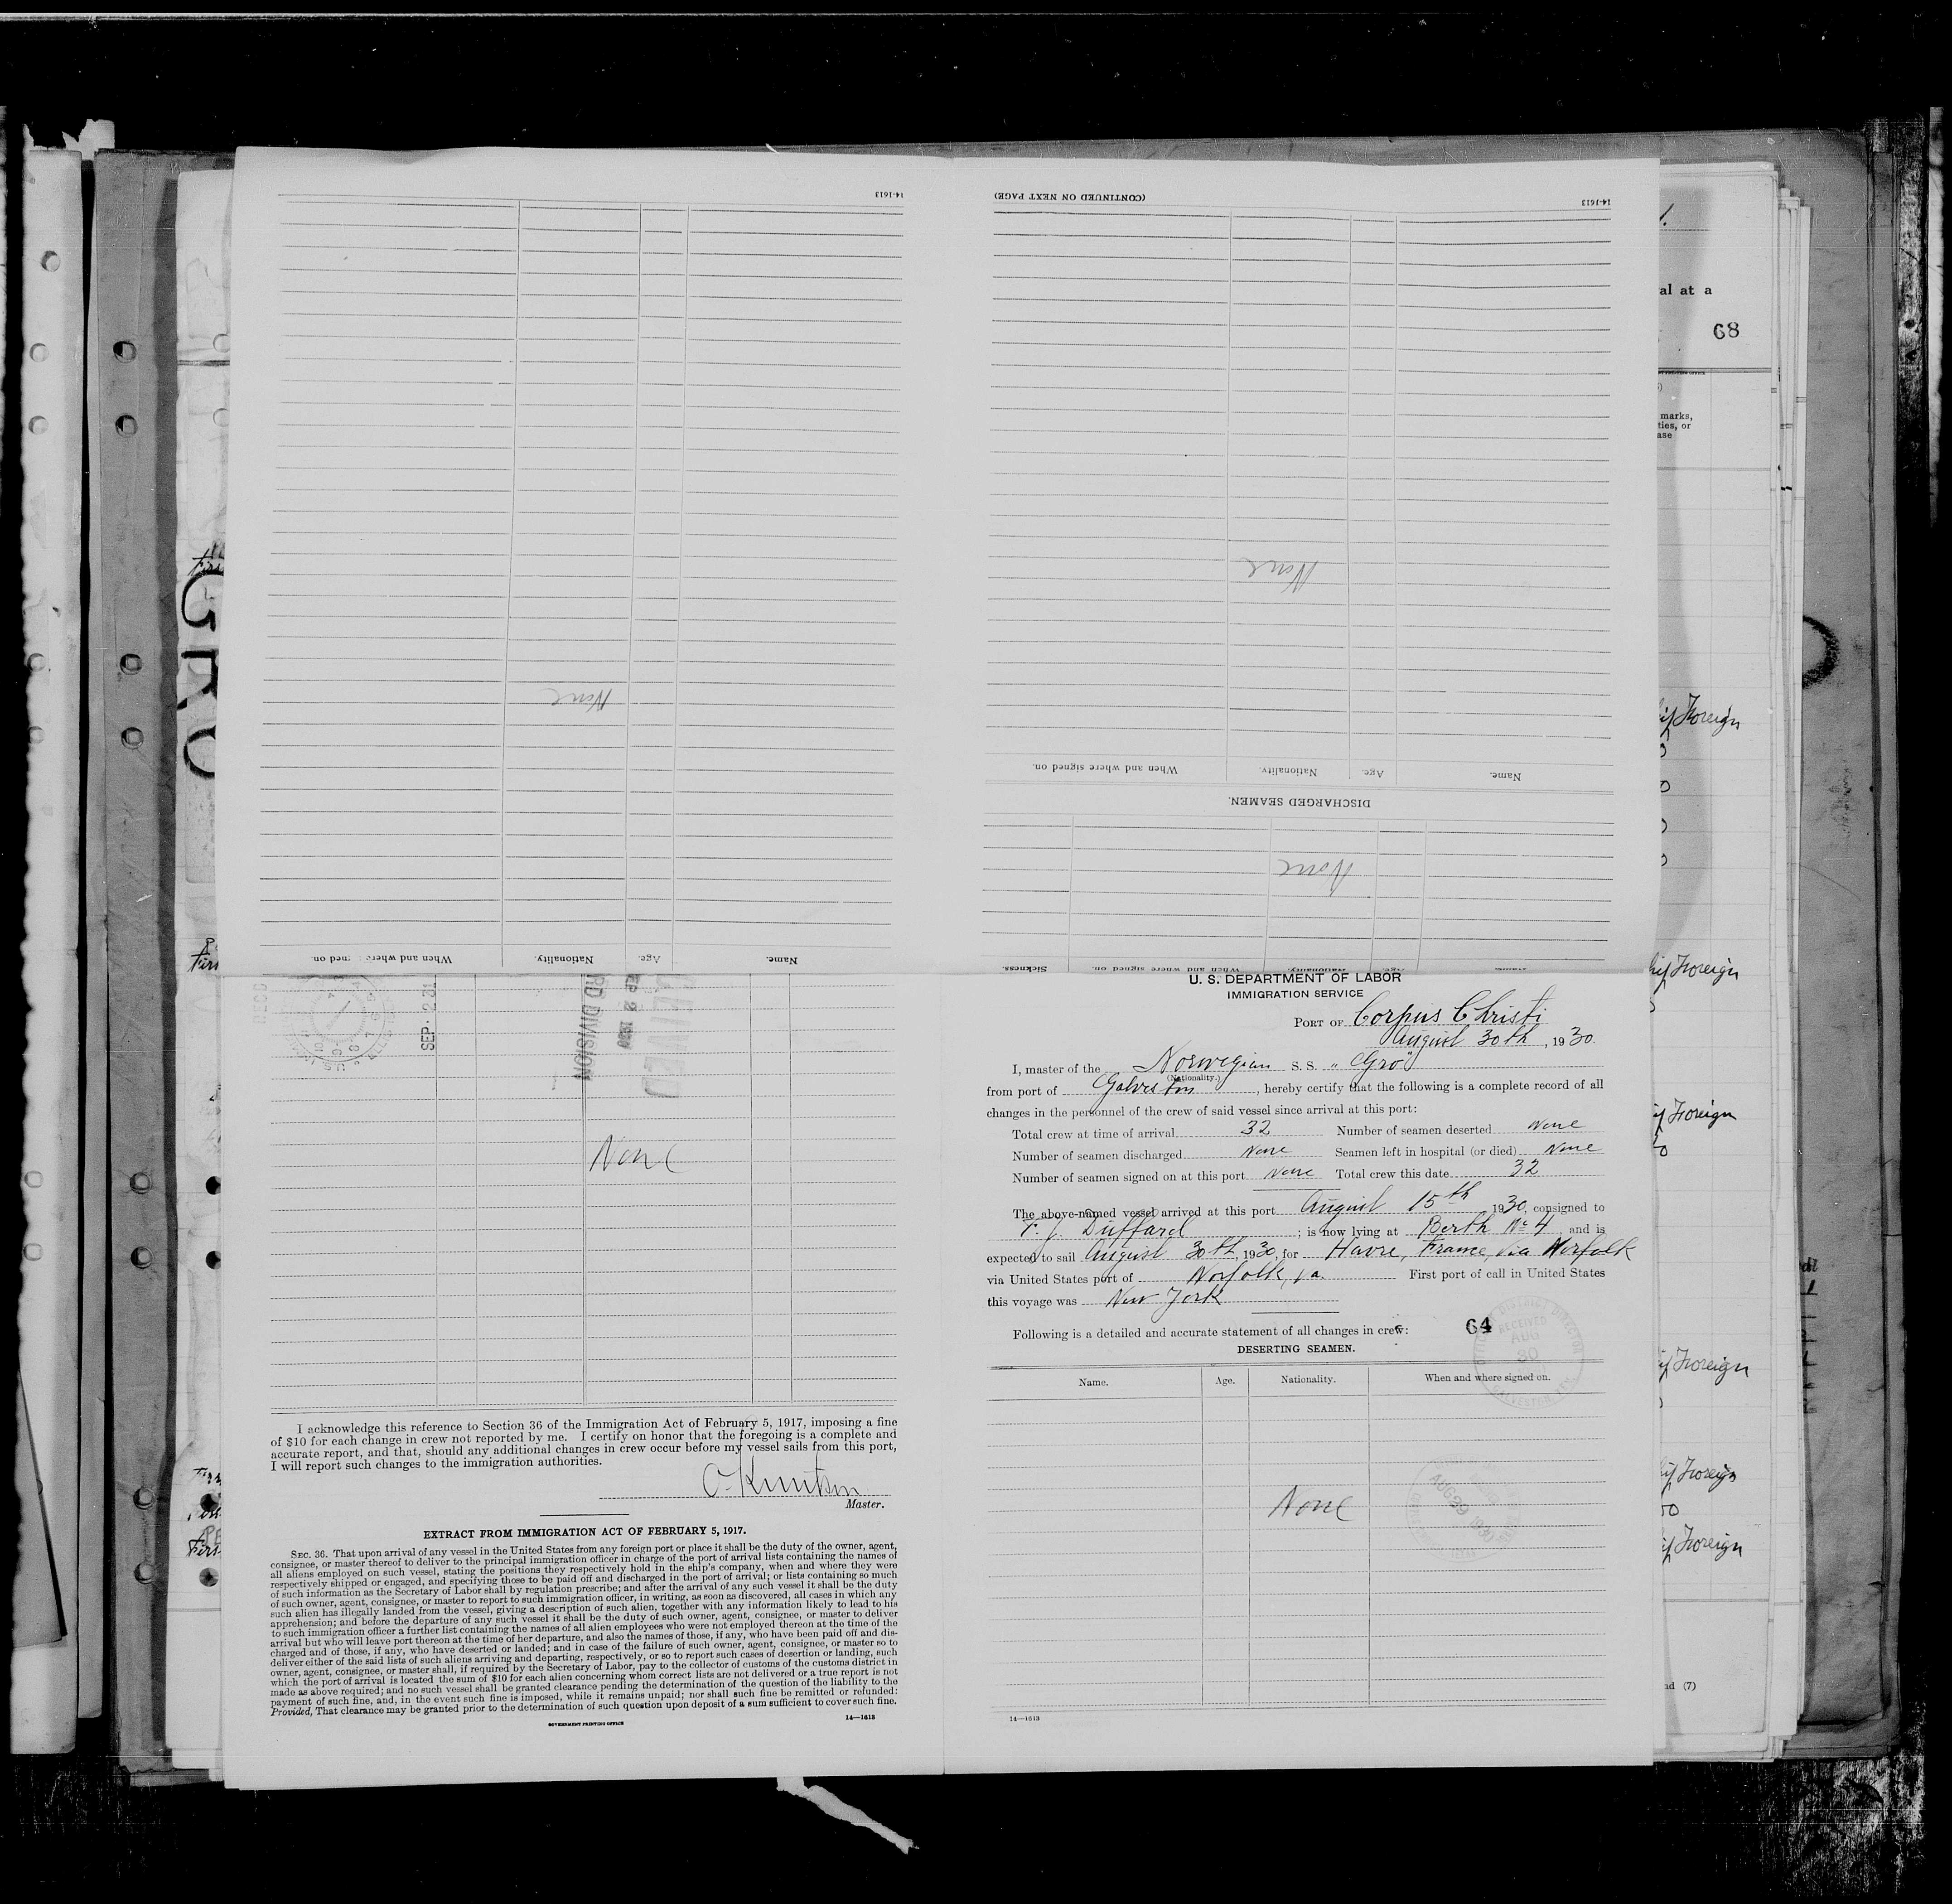 14-1613
(CONTINUED ON NEXT PAGE)
14-1613
None
None
When and where signed on.
Nationality.
Age.
Name.
DISCHARGED SEAMEN.
None
When and where signed on.
Nationality.
Age.
Name.
Sickness.
When and where signed on.
Nationality.
Age.
Name.
U. S. DEPARTMENT OF LABOR
IMMIGRATION SERVICE
PORT OF Corpus Christi
August 30th, 1930.
I, master of the Norwegian S. S. "Gro"
(Nationality.)
from port of Galveston, hereby certify that the following is a complete record of all
changes in the personnel of the crew of said vessel since arrival at this port:
Total crew at time of arrival 32 Number of seamen deserted None
Number of seamen discharged None Seamen left in hospital (or died) None
Number of seamen signed on at this port None Total crew this date 32
The above-named vessel arrived at this port August 15th 1930, consigned to
F. J. Duffard; is now lying at Berth No 4 and is
expected to sail August 30th, 1930, for Havre, France, via Norfolk
via United States port of Norfolk, Va. First port of call in United States
this voyage was New York
Following is a detailed and accurate statement of all changes in crew: 64
DESERTING SEAMEN.
Name. Age. Nationality. When and where signed on.
None
14—1613
RECEIVED
AUG
30
AUG 29 1930
SEP. 2 31
RD DIVISION
None
I acknowledge this reference to Section 36 of the Immigration Act of February 5, 1917, imposing a fine
of $10 for each change in crew not reported by me. I certify on honor that the foregoing is a complete and
accurate report, and that, should any additional changes in crew occur before my vessel sails from this port,
I will report such changes to the immigration authorities.
O Knutsen
Master.
EXTRACT FROM IMMIGRATION ACT OF FEBRUARY 5, 1917.
SEC. 36. That upon arrival of any vessel in the United States from any foreign port or place it shall be the duty of the owner, agent,
consignee, or master thereof to deliver to the principal immigration officer in charge of the port of arrival lists containing the names of
all aliens employed on such vessel, stating the positions they respectively hold in the ship's company, when and where they were
respectively shipped or engaged, and specifying those to be paid off and discharged in the port of arrival; or lists containing so much
of such information as the Secretary of Labor shall by regulation prescribe; and after the arrival of any such vessel it shall be the duty
of such owner, agent, consignee, or master to report to such immigration officer, in writing, as soon as discovered, all cases in which any
such alien has illegally landed from the vessel, giving a description of such alien, together with any information likely to lead to his
apprehension; and before the departure of any such vessel it shall be the duty of such owner, agent, consignee, or master to deliver
to such immigration officer a further list containing the names of all alien employees who were not employed thereon at the time of the
arrival but who will leave port thereon at the time of her departure, and also the names of those, if any, who have been paid off and dis-
charged and of those, if any, who have deserted or landed; and in case of the failure of such owner, agent, consignee, or master so to
deliver either of the said lists of such aliens arriving and departing, respectively, or so to report such cases of desertion or landing, such
owner, agent, consignee, or master shall, if required by the Secretary of Labor, pay to the collector of customs of the customs district in
which the port of arrival is located the sum of $10 for each alien concerning whom correct lists are not delivered or a true report is not
made as above required; and no such vessel shall be granted clearance pending the determination of the question of the liability to the
payment of such fine, and, in the event such fine is imposed, while it remains unpaid; nor shall such fine be remitted or refunded:
Provided, That clearance may be granted prior to the determination of such question upon deposit of a sum sufficient to cover such fine.
GOVERNMENT PRINTING OFFICE
14—1613
al at a
68
marks,
ties, or
ase
Foreign
Foreign
Foreign
Foreign
Foreign
Foreign
GRO
(7)